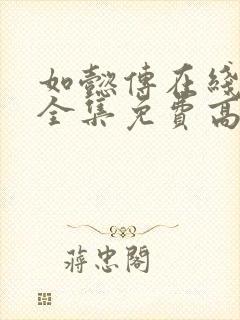 如懿傳在綫
全集免費高
蔣忠閣